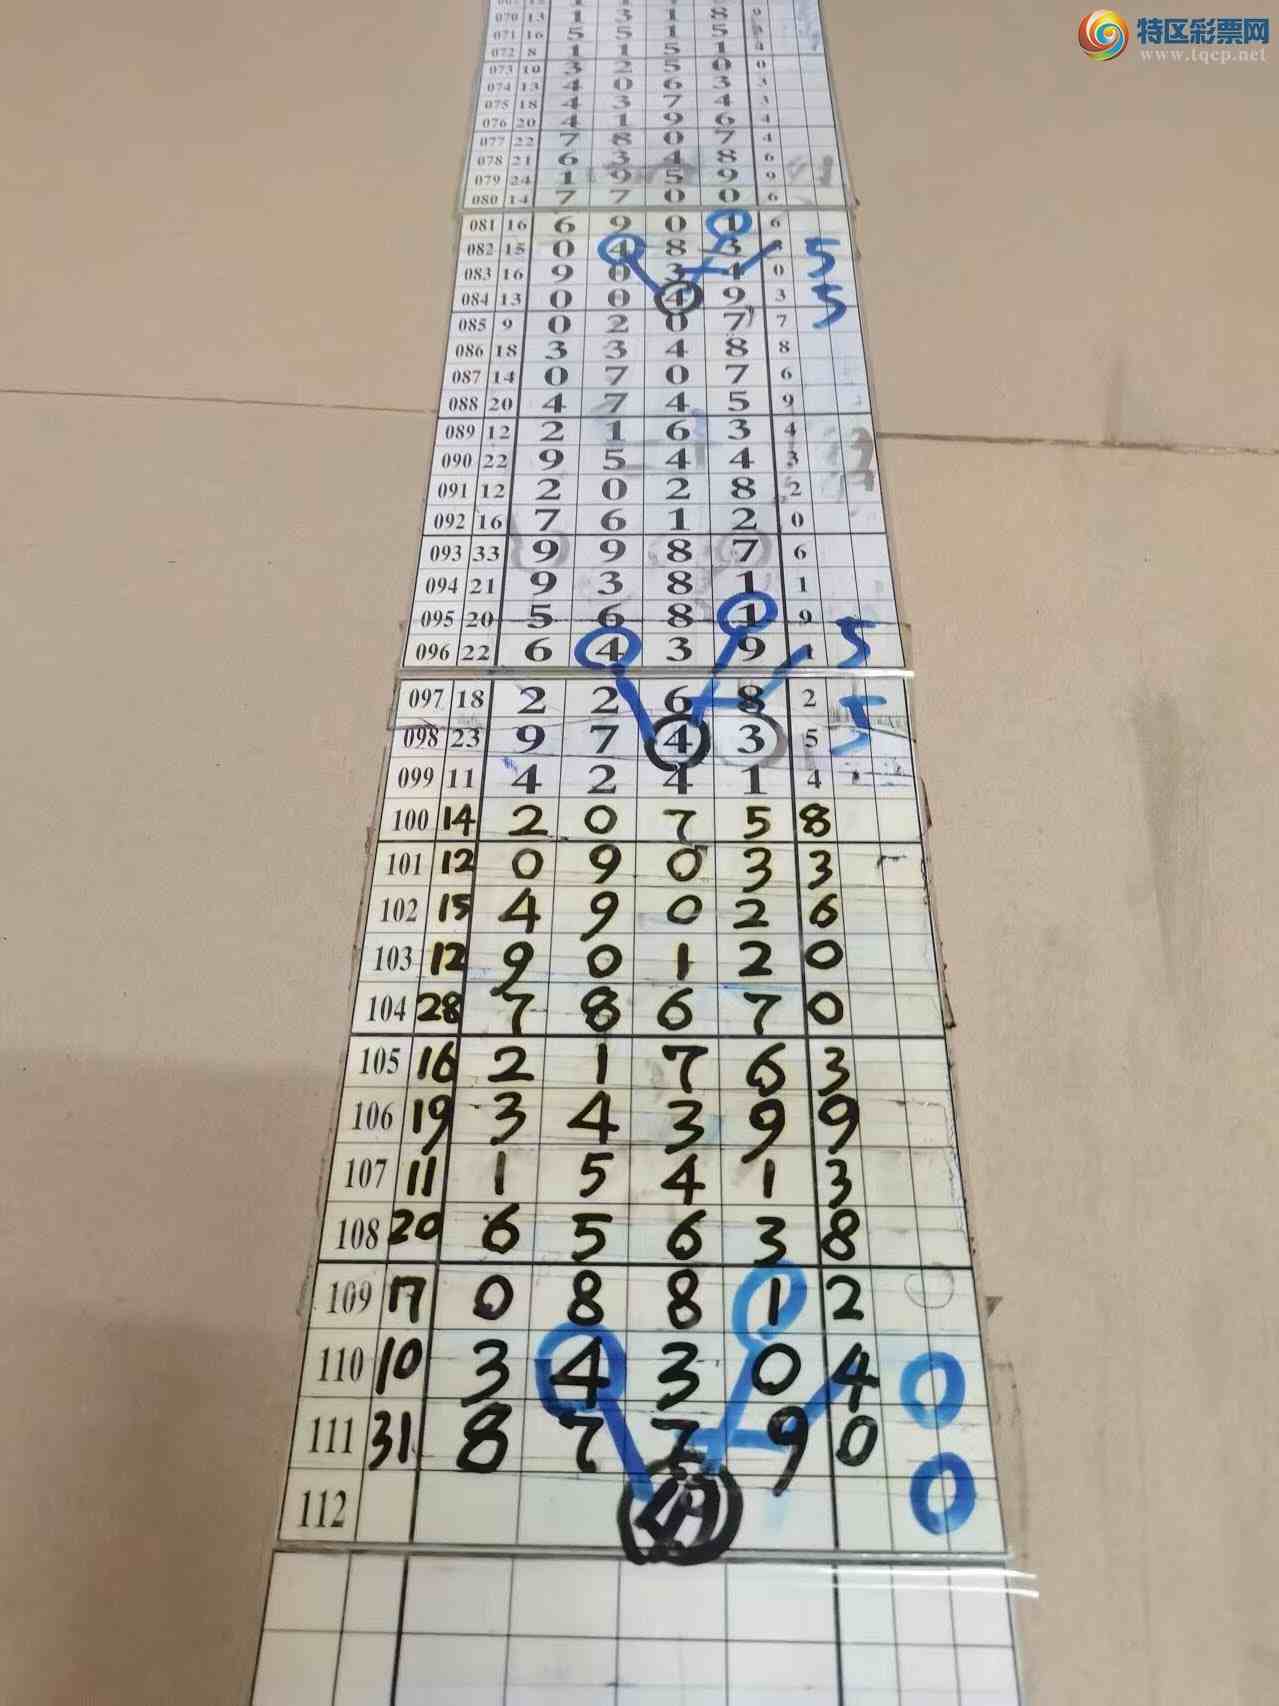 特区彩票网
www.tqcp.net
070 13 1 3 1 8 9
071 16 5 5 1 5
072 8 1 1 5 1 4
073 10 3 2 5 0 0
074 13 4 0 6 3 3
075 18 4 3 7 4 3
076 20 4 1 9 6 4
077 22 7 8 0 7 4
078 21 6 3 4 8 6
079 24 1 9 5 9 9
080 14 7 7 0 0 6
081 16 6 9 0 1 6
082 15 0 4 8 3 5
083 16 9 0 3 4 0
084 13 0 0 4 9 3 5
085 9 0 2 0 7 7
086 18 3 3 4 8 8
087 14 0 7 0 7 6
088 20 4 7 4 5 9
089 12 2 1 6 3 4
090 22 9 5 4 4 3
091 12 2 0 2 8 2
092 16 7 6 1 2 0
093 33 9 9 8 7 6
094 21 9 3 8 1 1
095 20 5 6 8 1 9
096 22 6 4 3 9 1 5
097 18 2 2 6 8 2
098 23 9 7 4 3 5 5
099 11 4 2 4 1 4
100 14 2 0 7 5 8
101 12 0 9 0 3 3
102 15 4 9 0 2 6
103 12 9 0 1 2 0
104 28 7 8 6 7 0
105 16 2 1 7 6 3
106 19 3 4 3 9 9
107 11 1 5 4 1 3
108 20 6 5 6 3 8
109 17 0 8 8 1 2
110 10 3 4 3 0 4 0
111 31 8 7 7 9 0
112 0